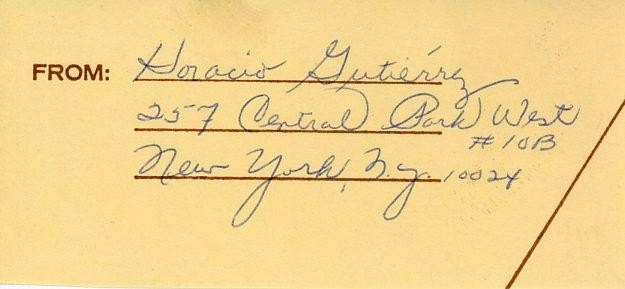 FROM: Horacio Gutiérrez
257 Central Park West
#10B
New York, N.Y. 10024